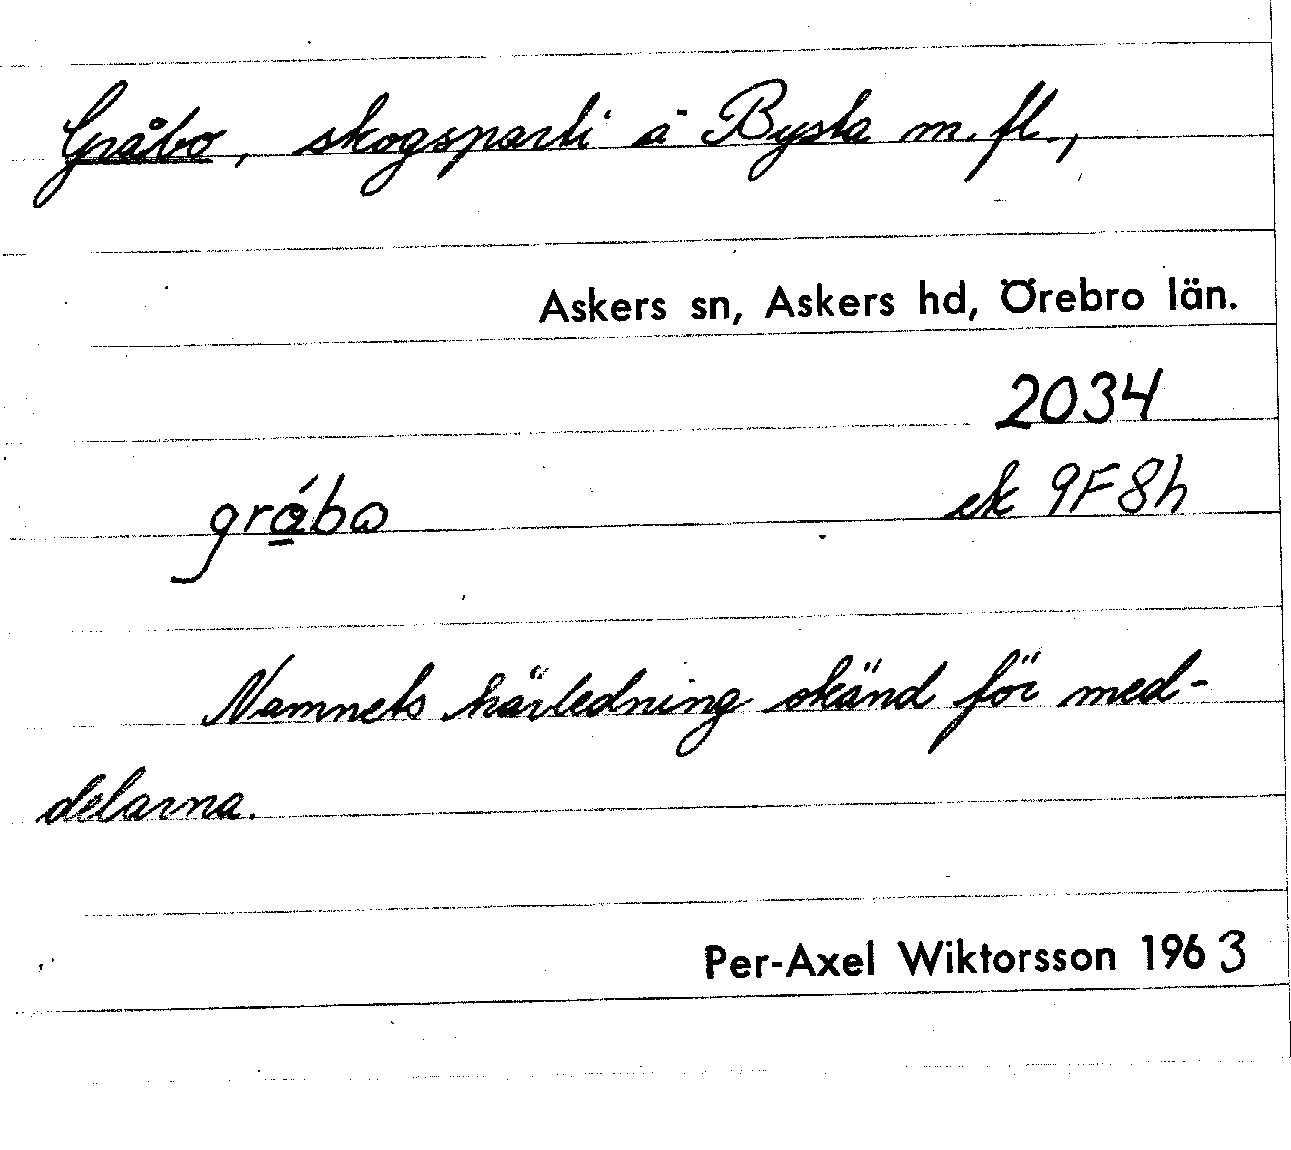 Gråbo, skogsparti å Bysta m.fl.,
Askers sn, Askers hd, Örebro län.
2034
gråbω ek 9F8h
Namnets härledning okänd för med-
delarna.
Per-Axel Wiktorsson 1963